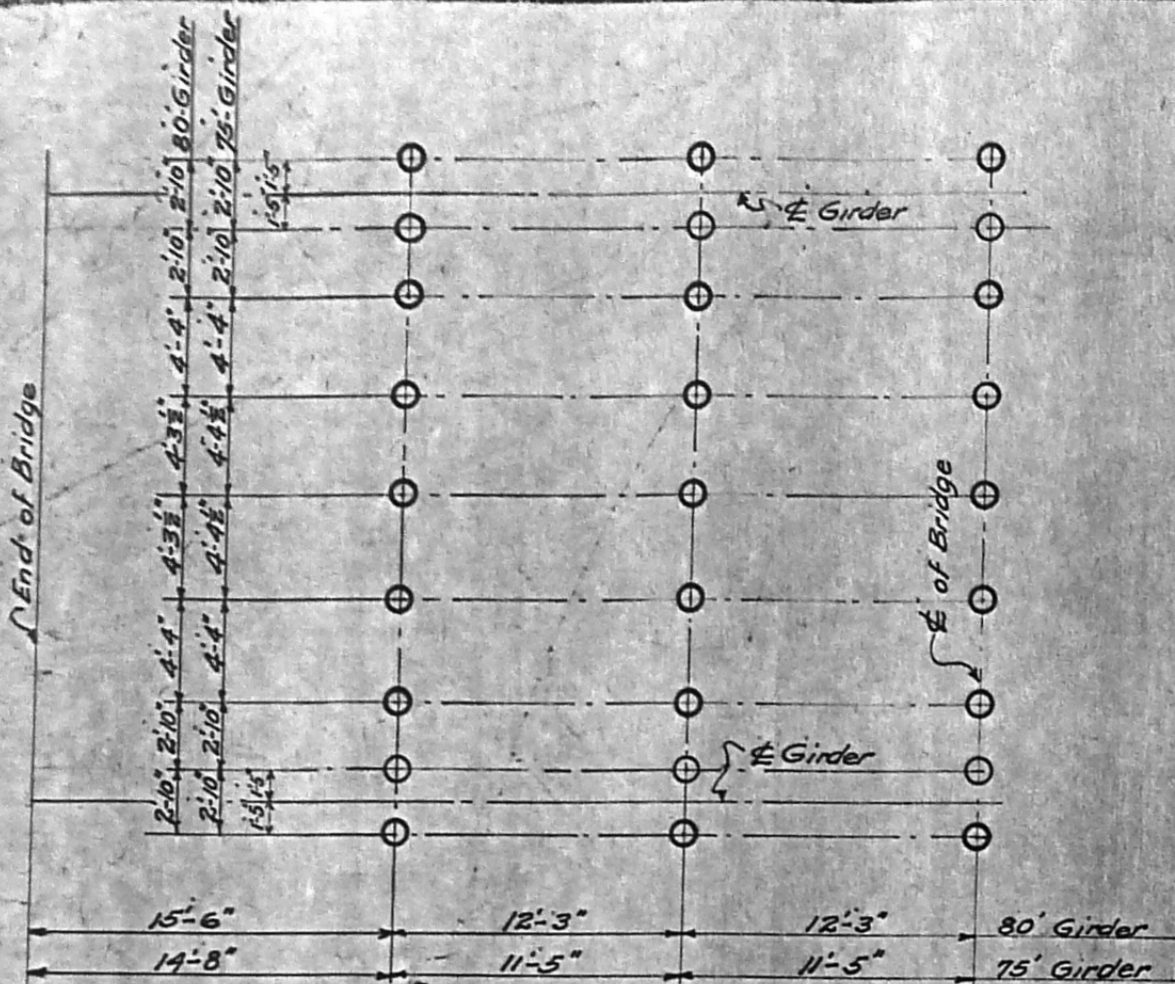 80' Girder
2'-10" 2'-10" 4'-4" 4'-3½" 4'-3½" 4'-4" 2'-10" 2'-10"
75' Girder
2'-10" 2'-10" 4'-4" 4'-4½" 4'-4½" 4'-4" 2'-10" 2'-10"
1'-5" 1'-5"
℄ Girder
End of Bridge
℄ of Bridge
℄ Girder
1'-5" 1'-5"
15'-6" 12'-3" 12'-3" 80' Girder
14'-8" 11'-5" 11'-5" 75' Girder